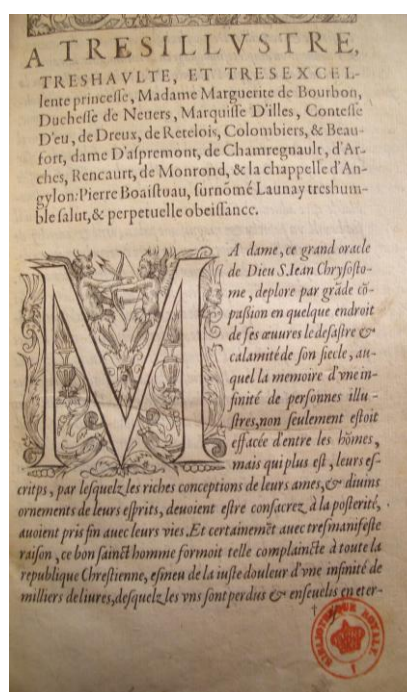 A TRESILLVSTRE,
TRESHAVLTE, ET TRESEXCEL-
lente princeſſe, Madame Marguerite de Bourbon,
Ducheſſe de Neuers, Marquiſſe D'illes, Conteſſe
D'eu, de Dreux, de Retelois, Colombiers, & Beau-
fort, dame D'aſpremont, de Chamregnault, d'Ar-
ches, Rencaurt, de Monrond, & la chappelle d'An-
gylon: Pierre Boaiſtuau, ſurnõmé Launay treshum-
ble ſalut, & perpetuelle obeiſſance.
MA dame, ce grand oracle
de Dieu S. Iean Chryſoſto-
me, deplore par grãde cõ-
paſsion en quelque endroit
de ſes œuures le deſaſtre &
calamité de ſon ſiecle, au-
quel la memoire d'vne in-
finité de perſonnes illu-
ſtres, non ſeulement eſtoit
effacée d'entre les hõmes,
mais qui plus eſt, leurs eſ-
critps, par leſquelz les riches conceptions de leurs ames, & diuins
ornements de leurs eſprits, deuoient eſtre conſacrez à la poſterité,
auoient pris fin auec leurs vies. Et certainemẽt auec treſmanifeſte
raiſon, ce bon ſainct homme formoit telle complaincte à toute la
republique Chreſtienne, eſmeu de la iuſte douleur d'vne infinité de
milliers de liures, deſquelz les vns ſont perdus & enſeuelis en eter-
BIBLIOTHEQUE ROYALE